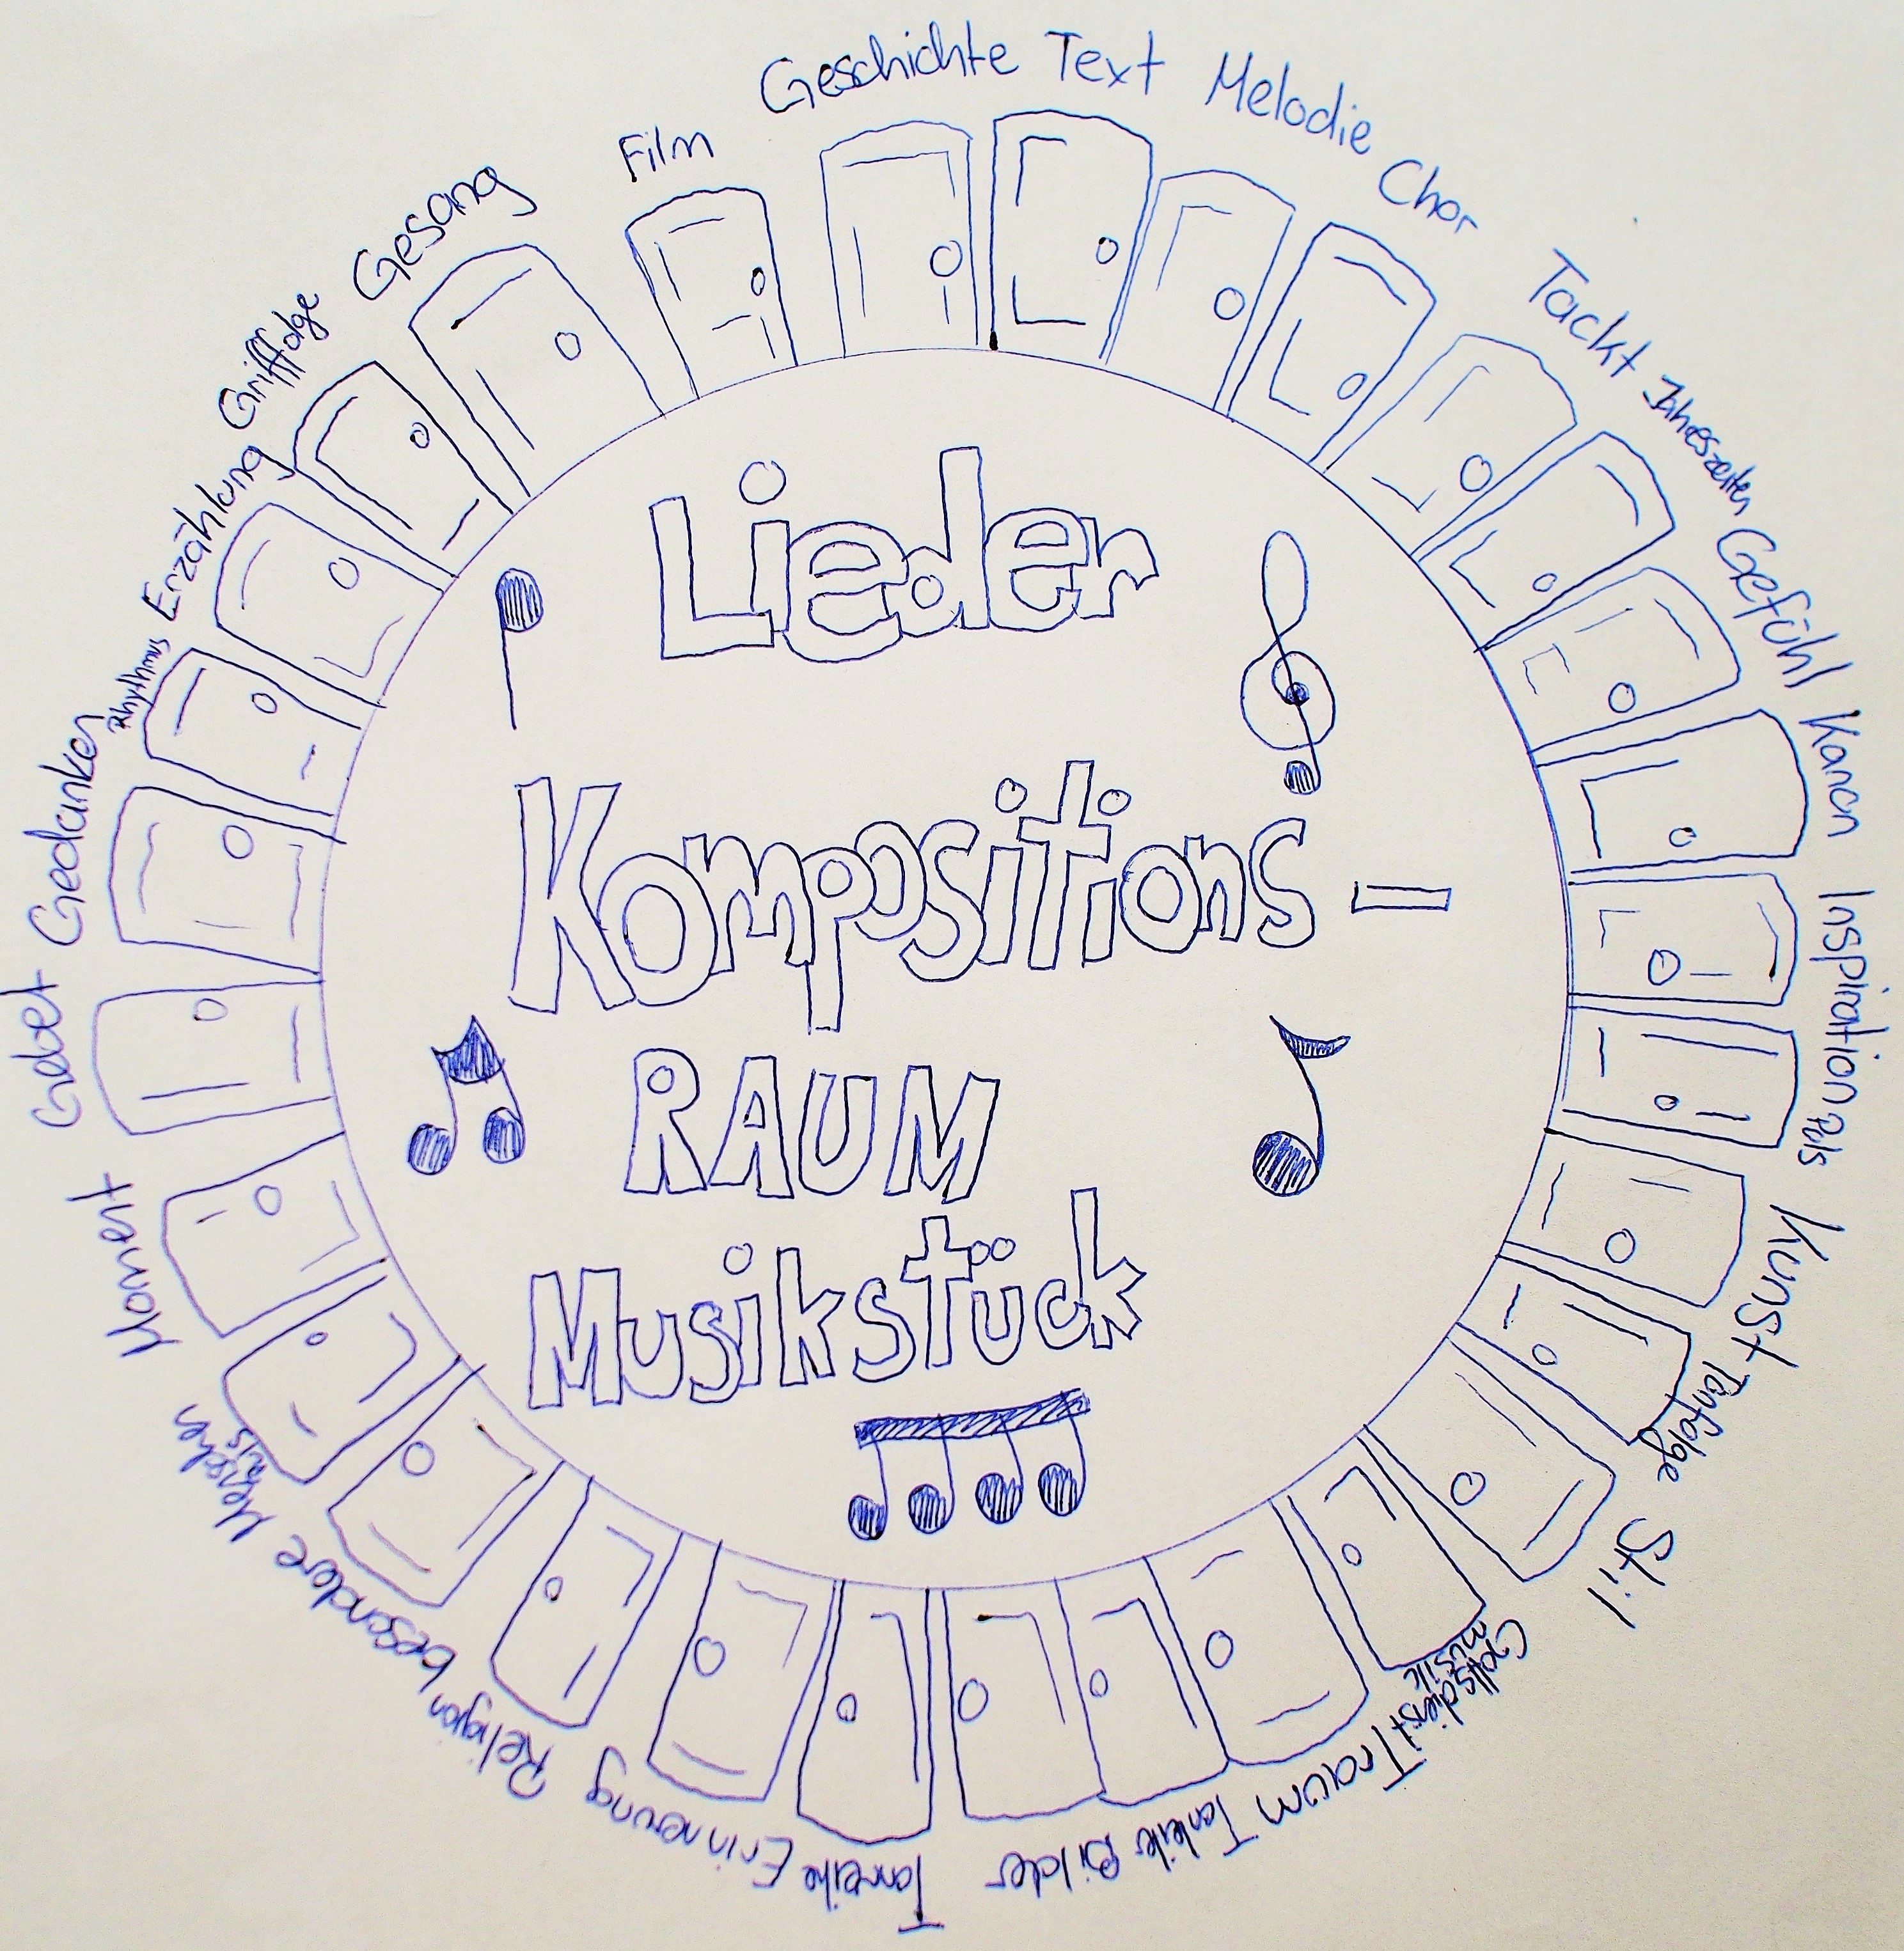 Lieder
Kompositions-
RAUM
Musikstück
Geschichte
Text
Melodie
Chor
Tackt
Jahreszeiten
Gefühl
Kanon
Inspiration
Puls
Kunst
Tonfolge
Stil
Gottsdienst
musik
Traum
Tonleiter
Bilder
Tonreihe
Erinnerung
Religion
besondere
Menschen
Moment
Gebet
Gedanken
Rhythmus
Erzählung
Grifffolge
Gesang
Film